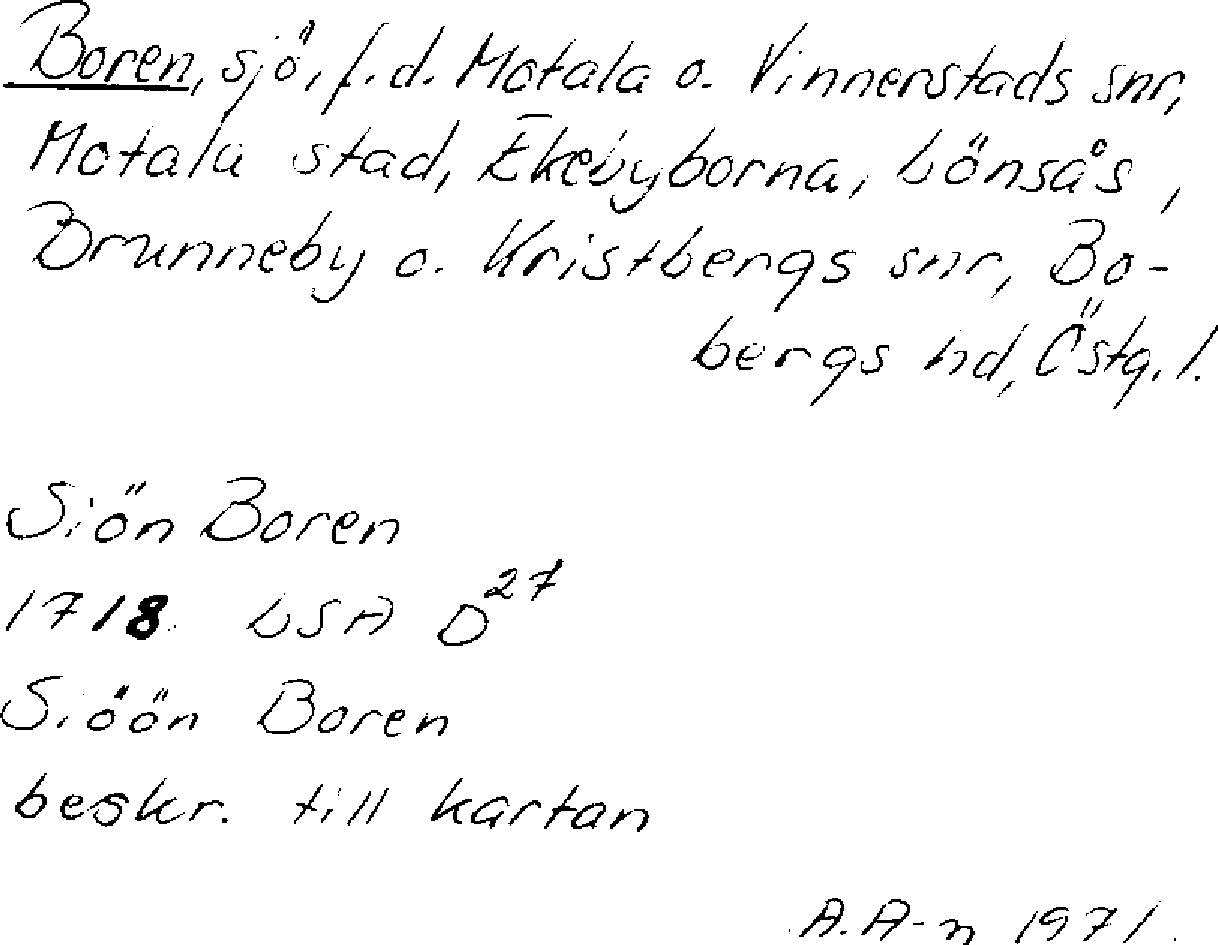 Boren, sjö, f.d. Motala o. Vinnerstads snr,
Motala stad, Ekebyborna, Lönsås,
Brunneby o. Kristbergs snr, Bo-
bergs hd, Östg. l.
Siön Boren
1718. LSA D27
Siöön Boren
beskr. till kartan
A. A-n 1971.